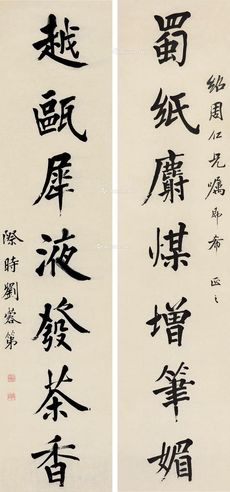 紹周仁兄囑即希正之
蜀紙麝煤增筆媚
越甌犀液發茶香
際時劉蓉第